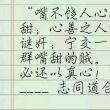 “嘴不饶人心
甜；心善之人
谜奸；宁交一
群嘴甜的贼，
必还以真心；
——志同道合